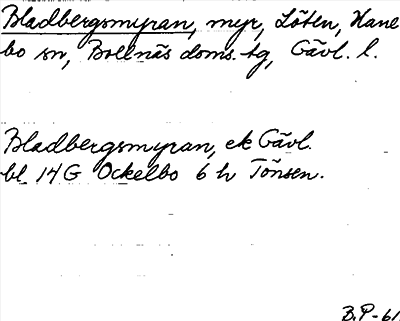 Bladbergsmyran, myr, Löten, Hane
bo sn, Bollnäs doms. tg, Gävl. l.
Bladbergsmyran, ek Gävl.
bl 14 G Ockelbo 6 h Tönsen.
B.P-61